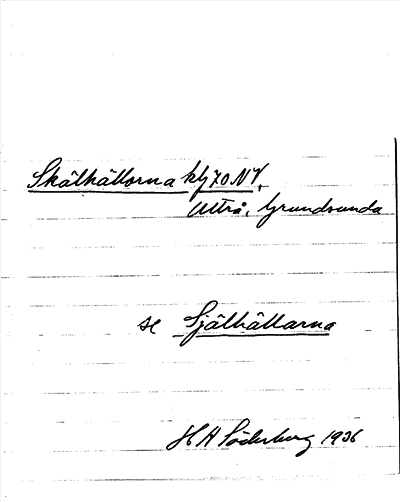 Skälhällorna klj 70 NV,
Utterå, Grundsunda
se Själhällarna
H A Söderberg 1936